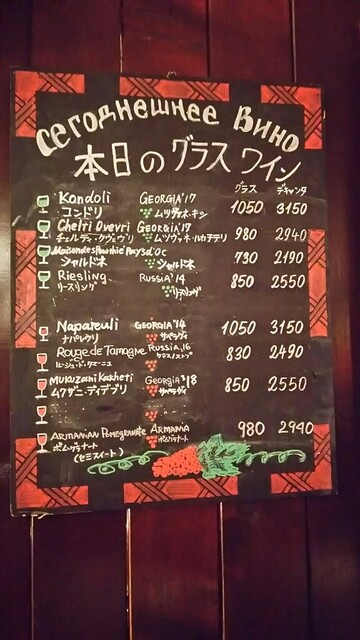 Сегоднешнее Вино
本日のグラスワイン
グラス デキャンタ
Kondoli GEORGIA'17 1050 3150
コンドリ ムツヴァネ・キシ
Chetri Qvevri GEORGIA'17 980 2940
チェルディ・クヴェヴリ ムツヴァネ・ルカチテリ
d'OC 730 2190
シャルドネ シャルドネ
Riesling RUSSIA '14 850 2550
リースリング リースリング
Napareuli GEORGIA'14 1050 3150
ナパレウリ サペラヴィ
Rouge de Tamagne RUSSIA,16 830 2490
ルージュ・ド・タマーニュ
Mukuzani Kakheti GEORGIA'18 850 2550
ムクザニ・ディデブリ サペラヴィ
ARMANIAN POMEGRANATE ARMANIA 980 2940
ポムグラナート ポムグラナート
(セミスイート)